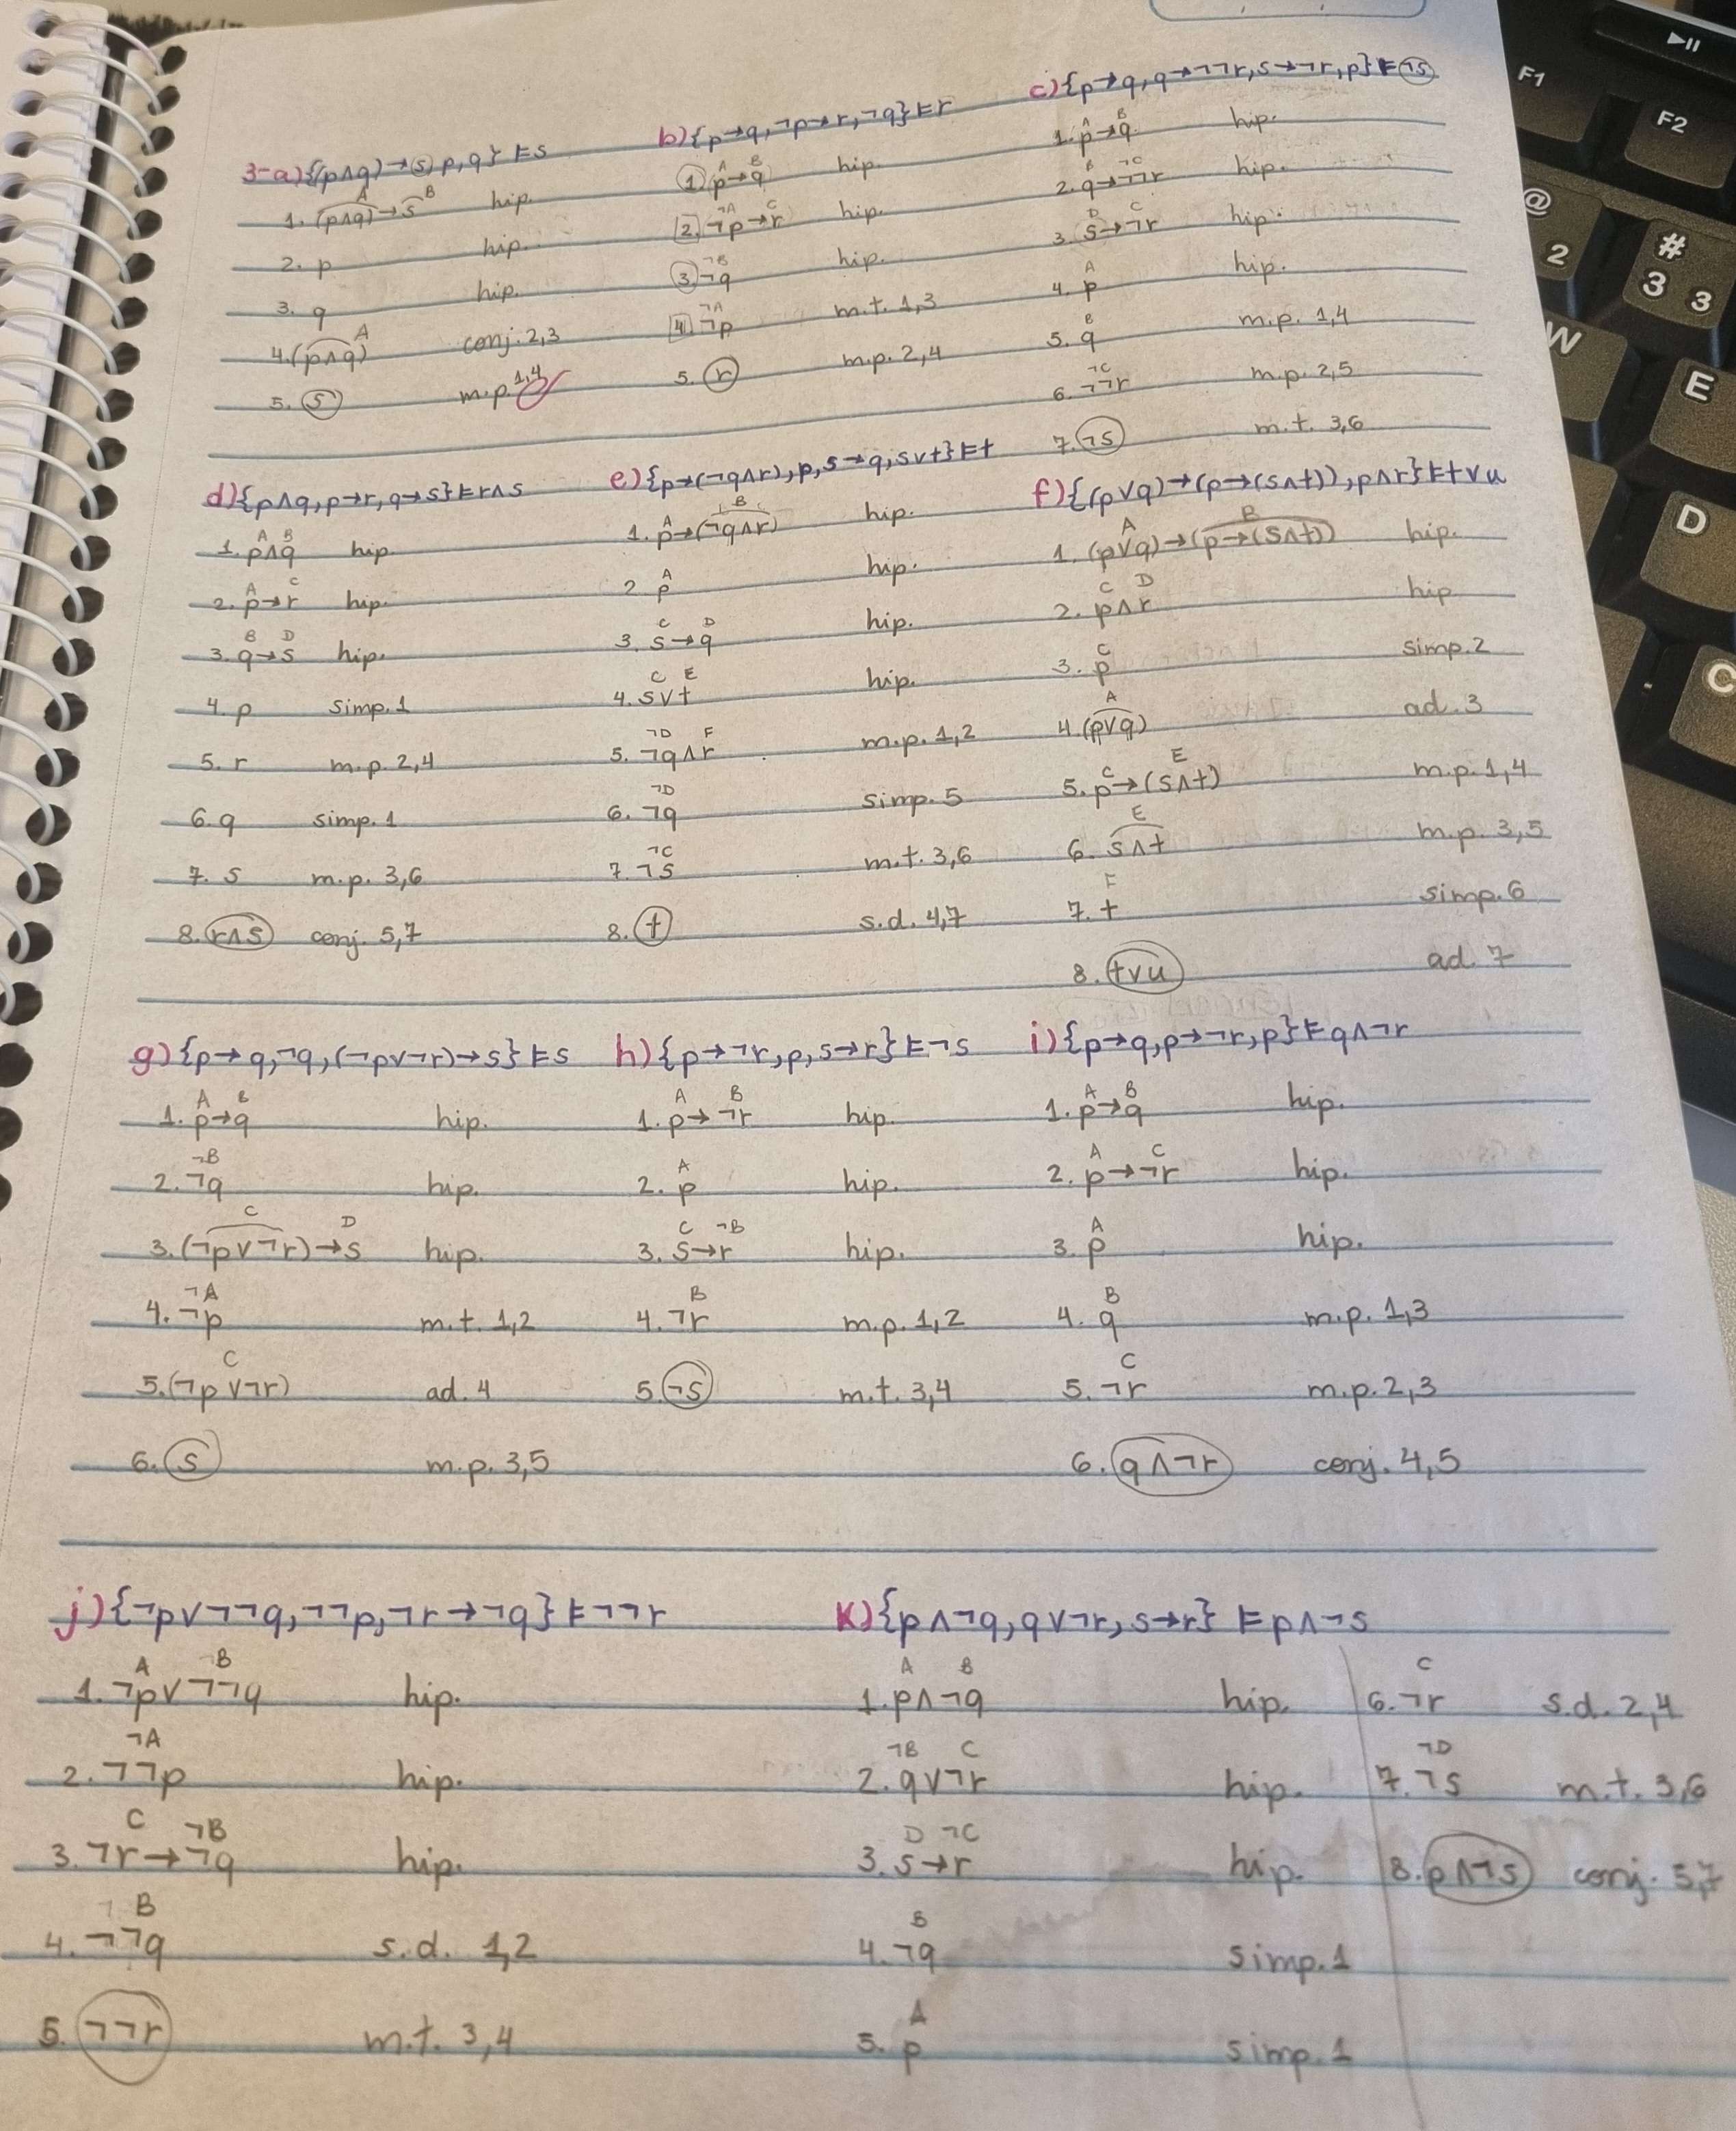 3-a) {(p∧q)→s, p, q} ⊨ s
A B
1. (p∧q)→s hip.
2. p hip.
3. q hip.
A
4. (p∧q) conj. 2,3
5. s m.p. 1,4
b) {p→q, ¬p→r, ¬q} ⊨ r
A B
1. p→q hip.
¬A C
2. ¬p→r hip.
¬B
3. ¬q hip.
¬A
4. ¬p m.t. 1,3
5. r m.p. 2,4
c) {p→q, q→¬¬r, s→¬r, p} ⊨ ¬s
A B
1. p→q hip.
B ¬C
2. q→¬¬r hip.
D C
3. s→¬r hip.
A
4. p hip.
B
5. q m.p. 1,4
¬C
6. ¬¬r m.p. 2,5
7. ¬s m.t. 3,6
d) {p∧q, p→r, q→s} ⊨ r∧s
A B
1. p∧q hip.
A C
2. p→r hip.
B D
3. q→s hip.
4. p simp. 1
5. r m.p. 2,4
6. q simp. 1
7. s m.p. 3,6
8. r∧s conj. 5,7
e) {p→(¬q∧r), p, s→q, s∨t} ⊨ t
A B
1. p→(¬q∧r) hip.
A
2. p hip.
C D
3. s→q hip.
C E
4. s∨t hip.
¬D F
5. ¬q∧r m.p. 1,2
¬D
6. ¬q simp. 5
¬C
7. ¬s m.t. 3,6
8. t s.d. 4,7
f) {(p∨q)→(p→(s∧t)), p∧r} ⊨ t∨u
A B
1. (p∨q)→(p→(s∧t)) hip.
C D
2. p∧r hip
C
3. p simp. 2
A
4. (p∨q) ad. 3
C E
5. p→(s∧t) m.p. 1,4
E
6. s∧t m.p. 3,5
F
7. t simp. 6
8. t∨u ad. 7
g) {p→q, ¬q, (¬p∨¬r)→s} ⊨ s
A B
1. p→q hip.
¬B
2. ¬q hip.
C D
3. (¬p∨¬r)→s hip.
¬A
4. ¬p m.t. 1,2
C
5. (¬p∨¬r) ad. 4
6. s m.p. 3,5
h) {p→¬r, p, s→r} ⊨ ¬s
A B
1. p→¬r hip.
A
2. p hip.
C ¬B
3. s→r hip.
B
4. ¬r m.p. 1,2
5. ¬s m.t. 3,4
i) {p→q, p→¬r, p} ⊨ q∧¬r
A B
1. p→q hip.
A C
2. p→¬r hip.
A
3. p hip.
B
4. q m.p. 1,3
C
5. ¬r m.p. 2,3
6. q∧¬r conj. 4,5
j) {¬p∨¬¬q, ¬¬p, ¬r→¬q} ⊨ ¬¬r
A B
1. ¬p∨¬¬q hip.
¬A
2. ¬¬p hip.
C ¬B
3. ¬r→¬q hip.
B
4. ¬¬q s.d. 1,2
5. ¬¬r m.t. 3,4
K) {p∧¬q, q∨¬r, s→r} ⊨ p∧¬s
A B
1. p∧¬q hip.
¬B C
2. q∨¬r hip.
D ¬C
3. s→r hip.
B
4. ¬q simp. 1
A
5. p simp. 1
C
6. ¬r s.d. 2,4
¬D
7. ¬s m.t. 3,6
8. p∧¬s conj. 5,7
▶II
F1
F2
@
2
#
3 3
W
E
D
C